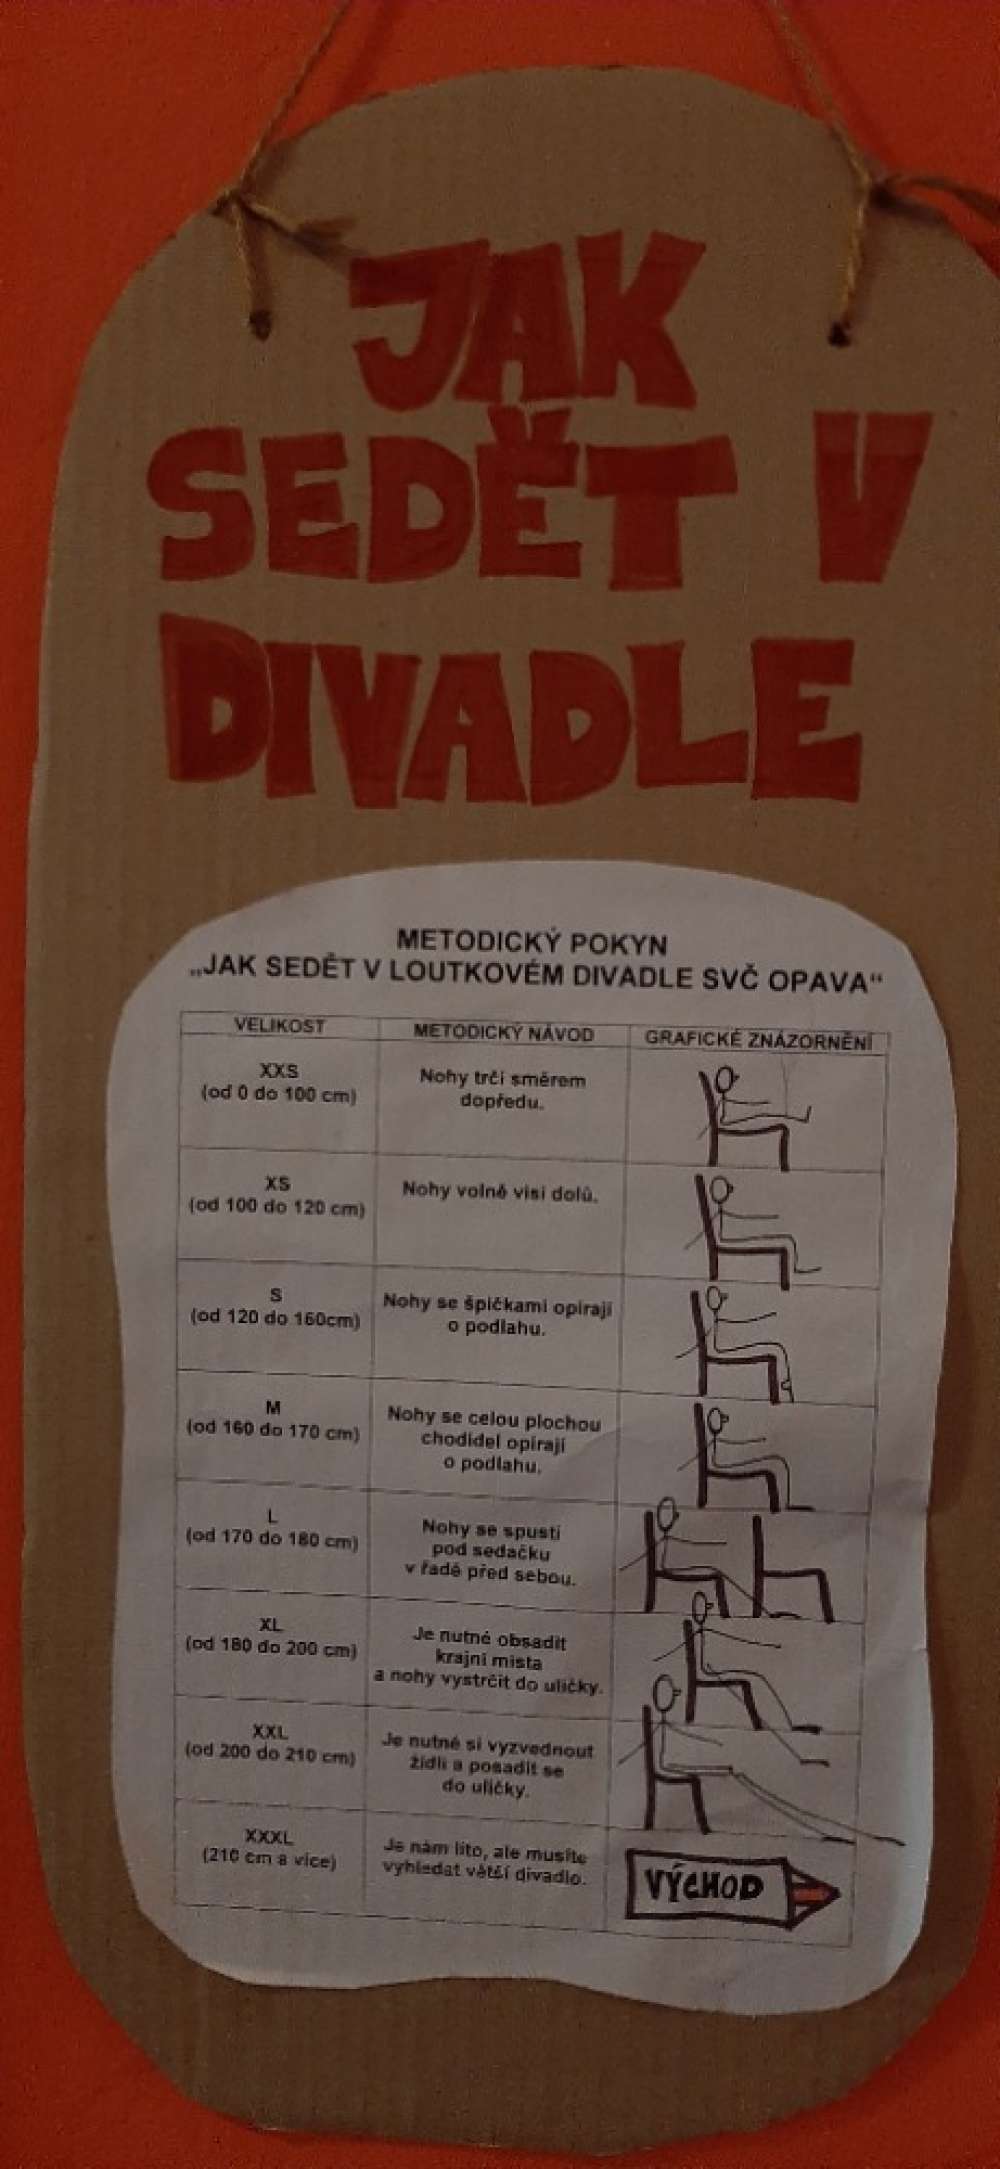 JAK
SEDĚT V
DIVADLE
METODICKÝ POKYN
„JAK SEDĚT V LOUTKOVÉM DIVADLE SVČ OPAVA“
VELIKOST METODICKÝ NÁVOD GRAFICKÉ ZNÁZORNĚNÍ
XXS
(od 0 do 100 cm)
Nohy trčí směrem
dopředu.
XS
(od 100 do 120 cm)
Nohy volně visí dolů.
S
(od 120 do 160cm)
Nohy se špičkami opírají
o podlahu.
M
(od 160 do 170 cm)
Nohy se celou plochou
chodidel opírají
o podlahu.
L
(od 170 do 180 cm)
Nohy se spustí
pod sedačku
v řadě před sebou.
XL
(od 180 do 200 cm)
Je nutné obsadit
krajní místa
a nohy vystrčit do uličky.
XXL
(od 200 do 210 cm)
Je nutné si vyzvednout
židli a posadit se
do uličky.
XXXL
(210 cm a více)
Je nám líto, ale musíte
vyhledat větší divadlo.
VÝCHOD